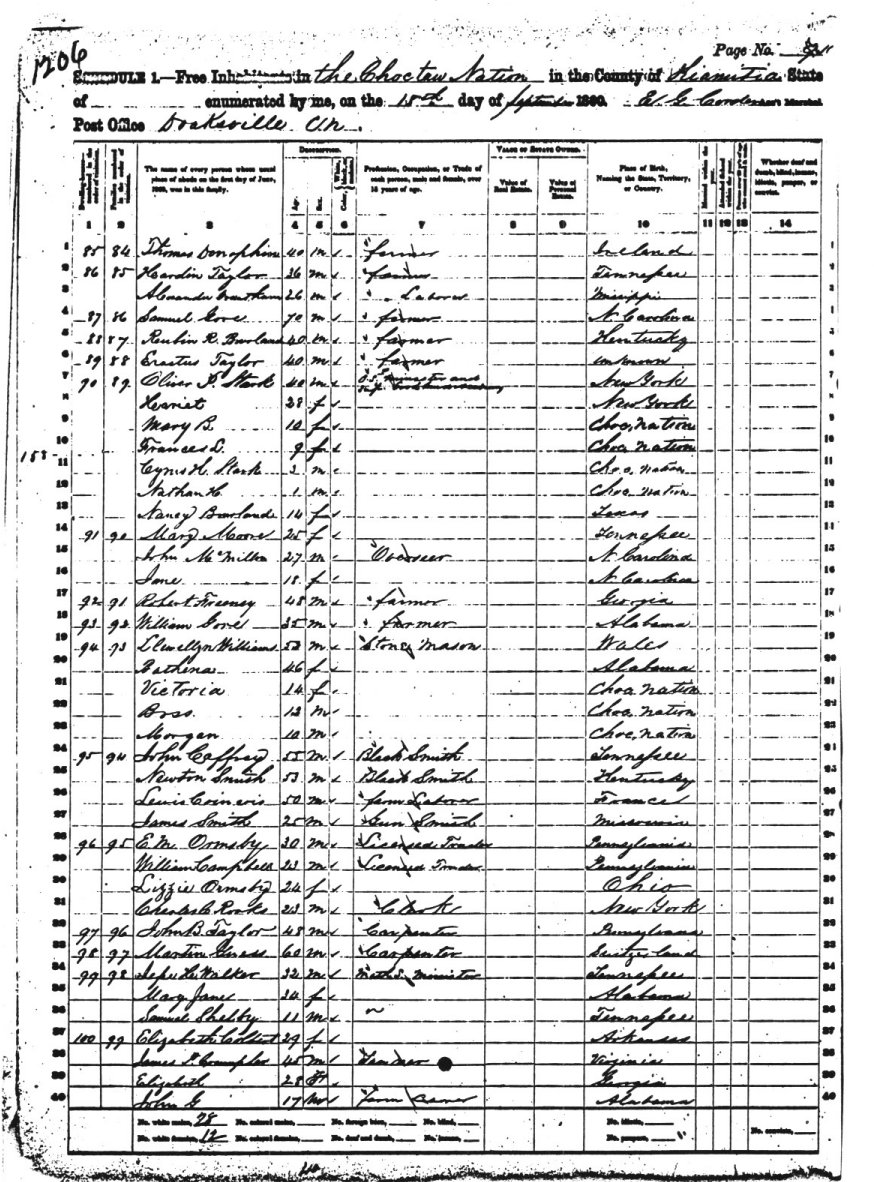 1206
Page No.
SCHEDULE 1.—Free Inhabitants in the Choctaw Nation in the County of Kiamitia State
of enumerated by me, on the 15th day of September 1860. E. G.
Post Office Doaksville C.N.
The name of every person whose usual place of abode on the first day of June, 1860, was in this family.
DESCRIPTION.
Age.
Sex.
Profession, Occupation, or Trade of each person, male and female, over 15 years of age.
VALUE OF ESTATE OWNED.
Value of Real Estate.
Value of Personal Estate.
Place of Birth, Naming the State, Territory, or Country.
Whether deaf and dumb, blind, insane, idiotic, pauper, or convict.
1 2 3 4 5 6 7 8 9 10 11 12 13 14
1 85 84 Thomas Donophim 40 m farmer Ireland
2 86 85 Hardin Taylor 36 m farmer Tennessee
3 Alexander 26 m Laborer Missippi
4 87 86 Samuel Gore 70 m farmer N Carolina
5 88 87 Reubin R. 40 m farmer Kentucky
6 89 88 Erastus Taylor 40 m farmer unknown
7 90 89 Oliver P. Stark 40 m minister and New York
8 Hariet 28 f New York
9 Mary B. 10 f Choc. nation
10 Frances L. 9 f Choc nation
11 Cyrus H. Stark 3 m Choc. nation
12 Nathan H. 1 m Choc nation
13 Nancy 14 f Texas
14 91 90 Mary Moore 25 f Tennessee
15 John McMillen 27 m Overseer N. Carolina
16 Jane 18 f N Carolina
17 92 91 Robert Freeney 48 m farmer Georgia
18 93 92 William Gore 35 m farmer Alabama
19 94 93 Llewellyn Williams 52 m Stone Mason Wales
20 46 f Alabama
21 Victoria 14 f Choc. nation
22 Boss 12 m Choc. nation
23 Morgan 10 m Choc. nation
24 95 94 John Caffrey 55 m Black Smith Tennessee
25 Newton Smith 53 m Black Smith Kentucky
26 Lewis 50 m farm Laborer France
27 James Smith 25 m Gun Smith Missouria
28 96 95 E.M. Ormsby 30 m Licensed Trader Pennsylvania
29 William Campbell 23 m Licensed Trader Pennsylvania
30 Lizzie Ormsby 24 f Ohio
31 Charles C. Rooks 23 m Clerk New York
32 97 96 John B. Taylor 48 m Carpenter Pennsylvania
33 98 97 Martin 60 m Carpenter
34 99 98 Jesse H. Walker 32 m Meth. minister Tennessee
35 Mary Jane f Alabama
36 Samuel Shelby 11 m Tennessee
37 100 99 Elizabeth Colbert 29 f Arkansas
38 James P. Crumpler 45 m Virginia
39 Elizabeth 28 Georgia
40 John G 17 m farm Alabama
No. white males, 28 No. colored males, No. foreign born, No. blind, No. idiotic,
No. white females, 12 No. colored females, No. deaf and dumb, No. insane, No. paupers, No. convicts,
40